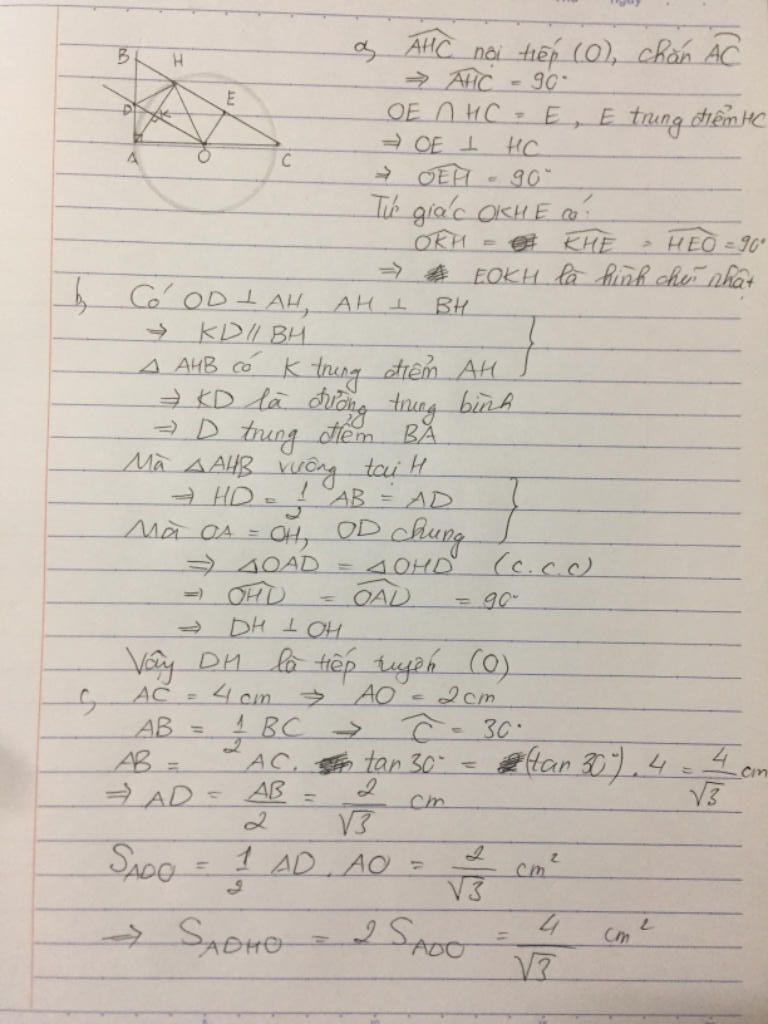 a, AHC nội tiếp (O), chắn AC
⇒ AHC = 90°
OE ∩ HC = E, E trung điểm HC
⇒ OE ⊥ HC
⇒ OEH = 90°
Tứ giác OKHE có:
OKH = KHE = HEO = 90°
⇒ EOKH là hình chữ nhật
B H E D K A O C
b, Có OD ⊥ AH, AH ⊥ BH
⇒ KD // BH
△ AHB có K trung điểm AH
⇒ KD là đường trung bình
⇒ D trung điểm BA
Mà △AHB vuông tại H
⇒ HD = 1/2 AB = AD
Mà OA = OH, OD chung
⇒ △OAD = △OHD (c.c.c)
⇒ OHD = OAD = 90°
⇒ DH ⊥ OH
Vậy DH là tiếp tuyến (O)
c, AC = 4 cm ⇒ AO = 2 cm
AB = 1/2 BC ⇒ C = 30°
AB = AC. tan 30° = (tan 30°) . 4 = 4/√3 cm
⇒ AD = AB/2 = 2/√3 cm
S_ADO = 1/2 AD . AO = 2/√3 cm²
⇒ S_ADHO = 2 S_ADO = 4/√3 cm²